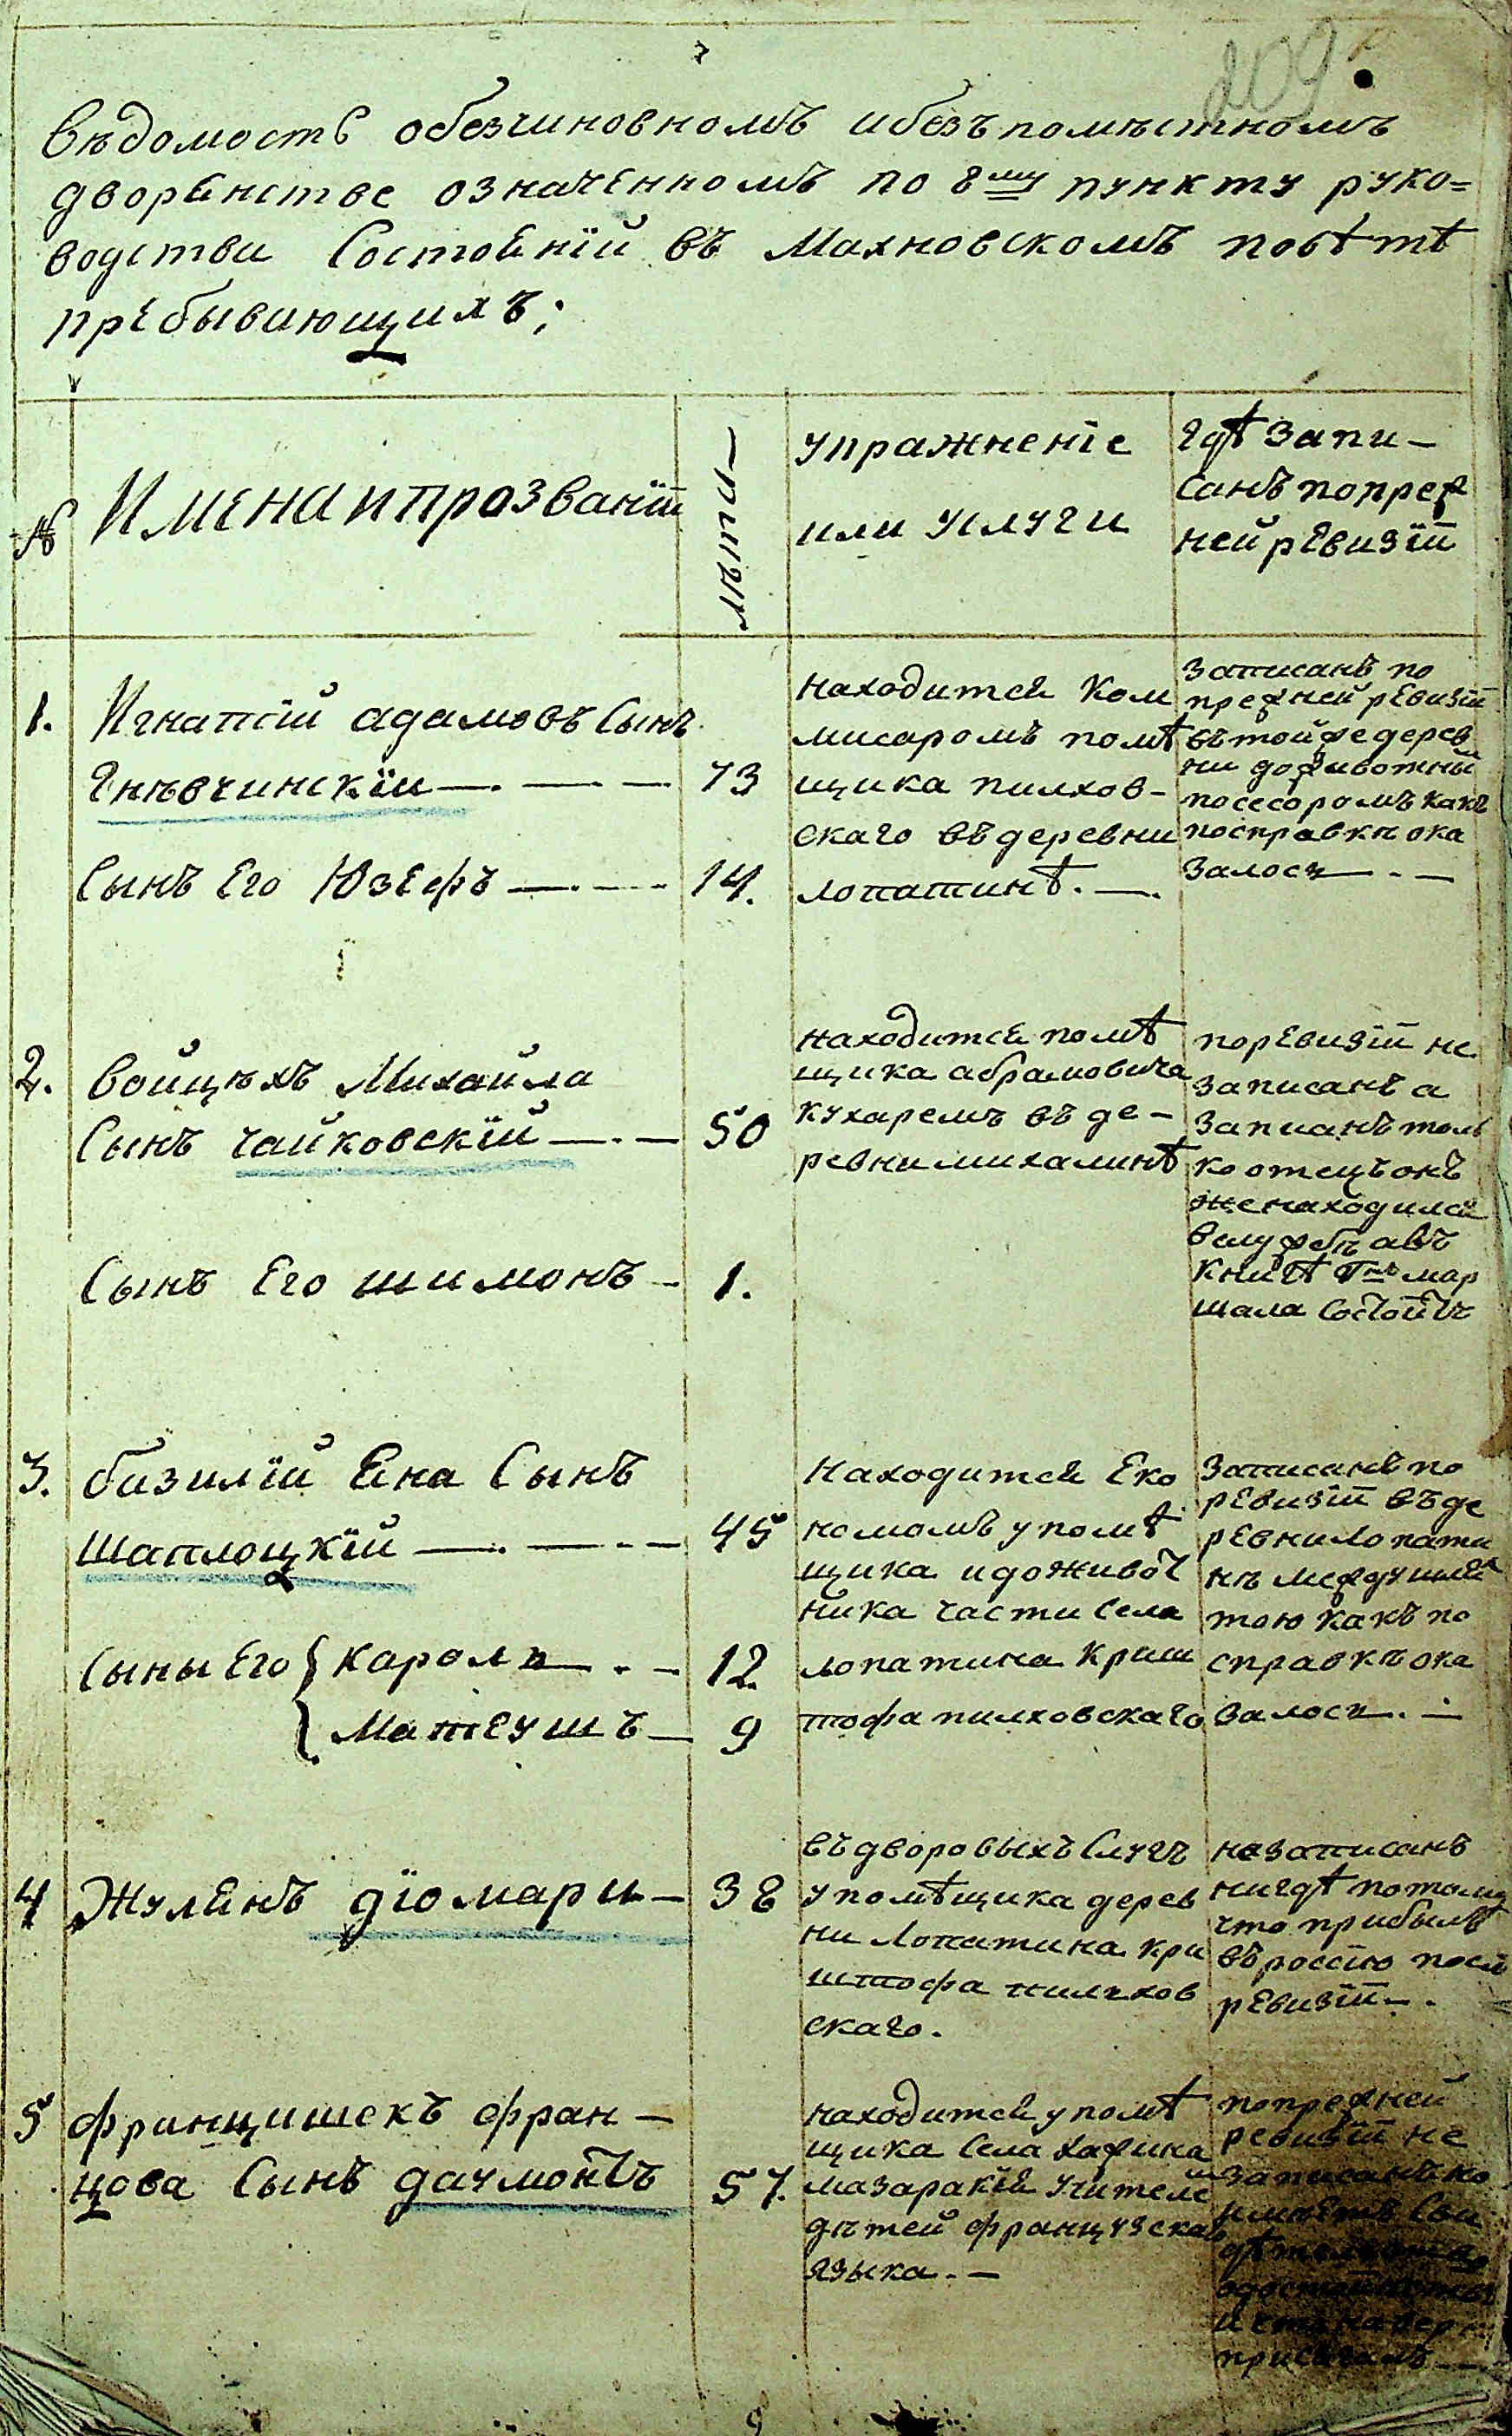 209
Вѣдомость обезчиновномъ ибезъпомѣстномъ
дворянстве означенномъ по 8му пункту руко=
водства Состояній въ Махновскомъ повѣтѣ
пребывающихъ;
№
Имена и прозваніи
лѣта
упражненіе
или услуги
гдѣ запи-
санъ попреж
ней ревизіи
1. Игнатій адамовъ Сынъ
Янѣвчинскіи 73
Сынъ Его Юзефъ 14.
находится Ком
мисаромъ помѣ
щика пилхов-
скаго въ деревни
лопатинѣ.
записанъ по
прежней ревизіи
въ тойже дерев
ни доживотный
посесоромъ какъ
посправкѣ ока
залось
2. войцѣхъ Михайла
Сынъ чайковскій 50
Сынъ Его шимонъ 1.
находится помѣ
щика абрамовича
кухаремъ въ де-
ревни михалинѣ
поревизіи не
записанъ а
записанъ толь
ко отецъ онъ
же находился
вслужбѣ авъ
книгѣ Гна мар
шала состоитъ
3. базилій Яна Сынъ
Шаплоцкій 45
Сыны Его { Кароль 12
{ Матеушъ 9
Находится Еко
номомъ у помѣ
щика идоживот
ника части села
лопатина Криш
тофа пилховскаго
Записанъ по
ревизіи въ де
ревни Лопати
нѣ между шля
тою какъ по
справкѣ ока
залось.
4 Жулянъ дюмари 38
въ дворовыхъ Слугъ
у помѣщика дерев
ни Лопатина кри
штофа пильхов
скаго.
незаписанъ
нигдѣ потому
что прибылъ
въ россію послѣ
ревизіи.
5 францишекъ фран-
цова Сынъ даумонтъ 57.
находится у помѣ
щика села хажина
мазаракія учителем
дѣтей француіскаго
языка.
попрежней
ревизіи не
записанъ но
имѣетъ Сви
присягалъ